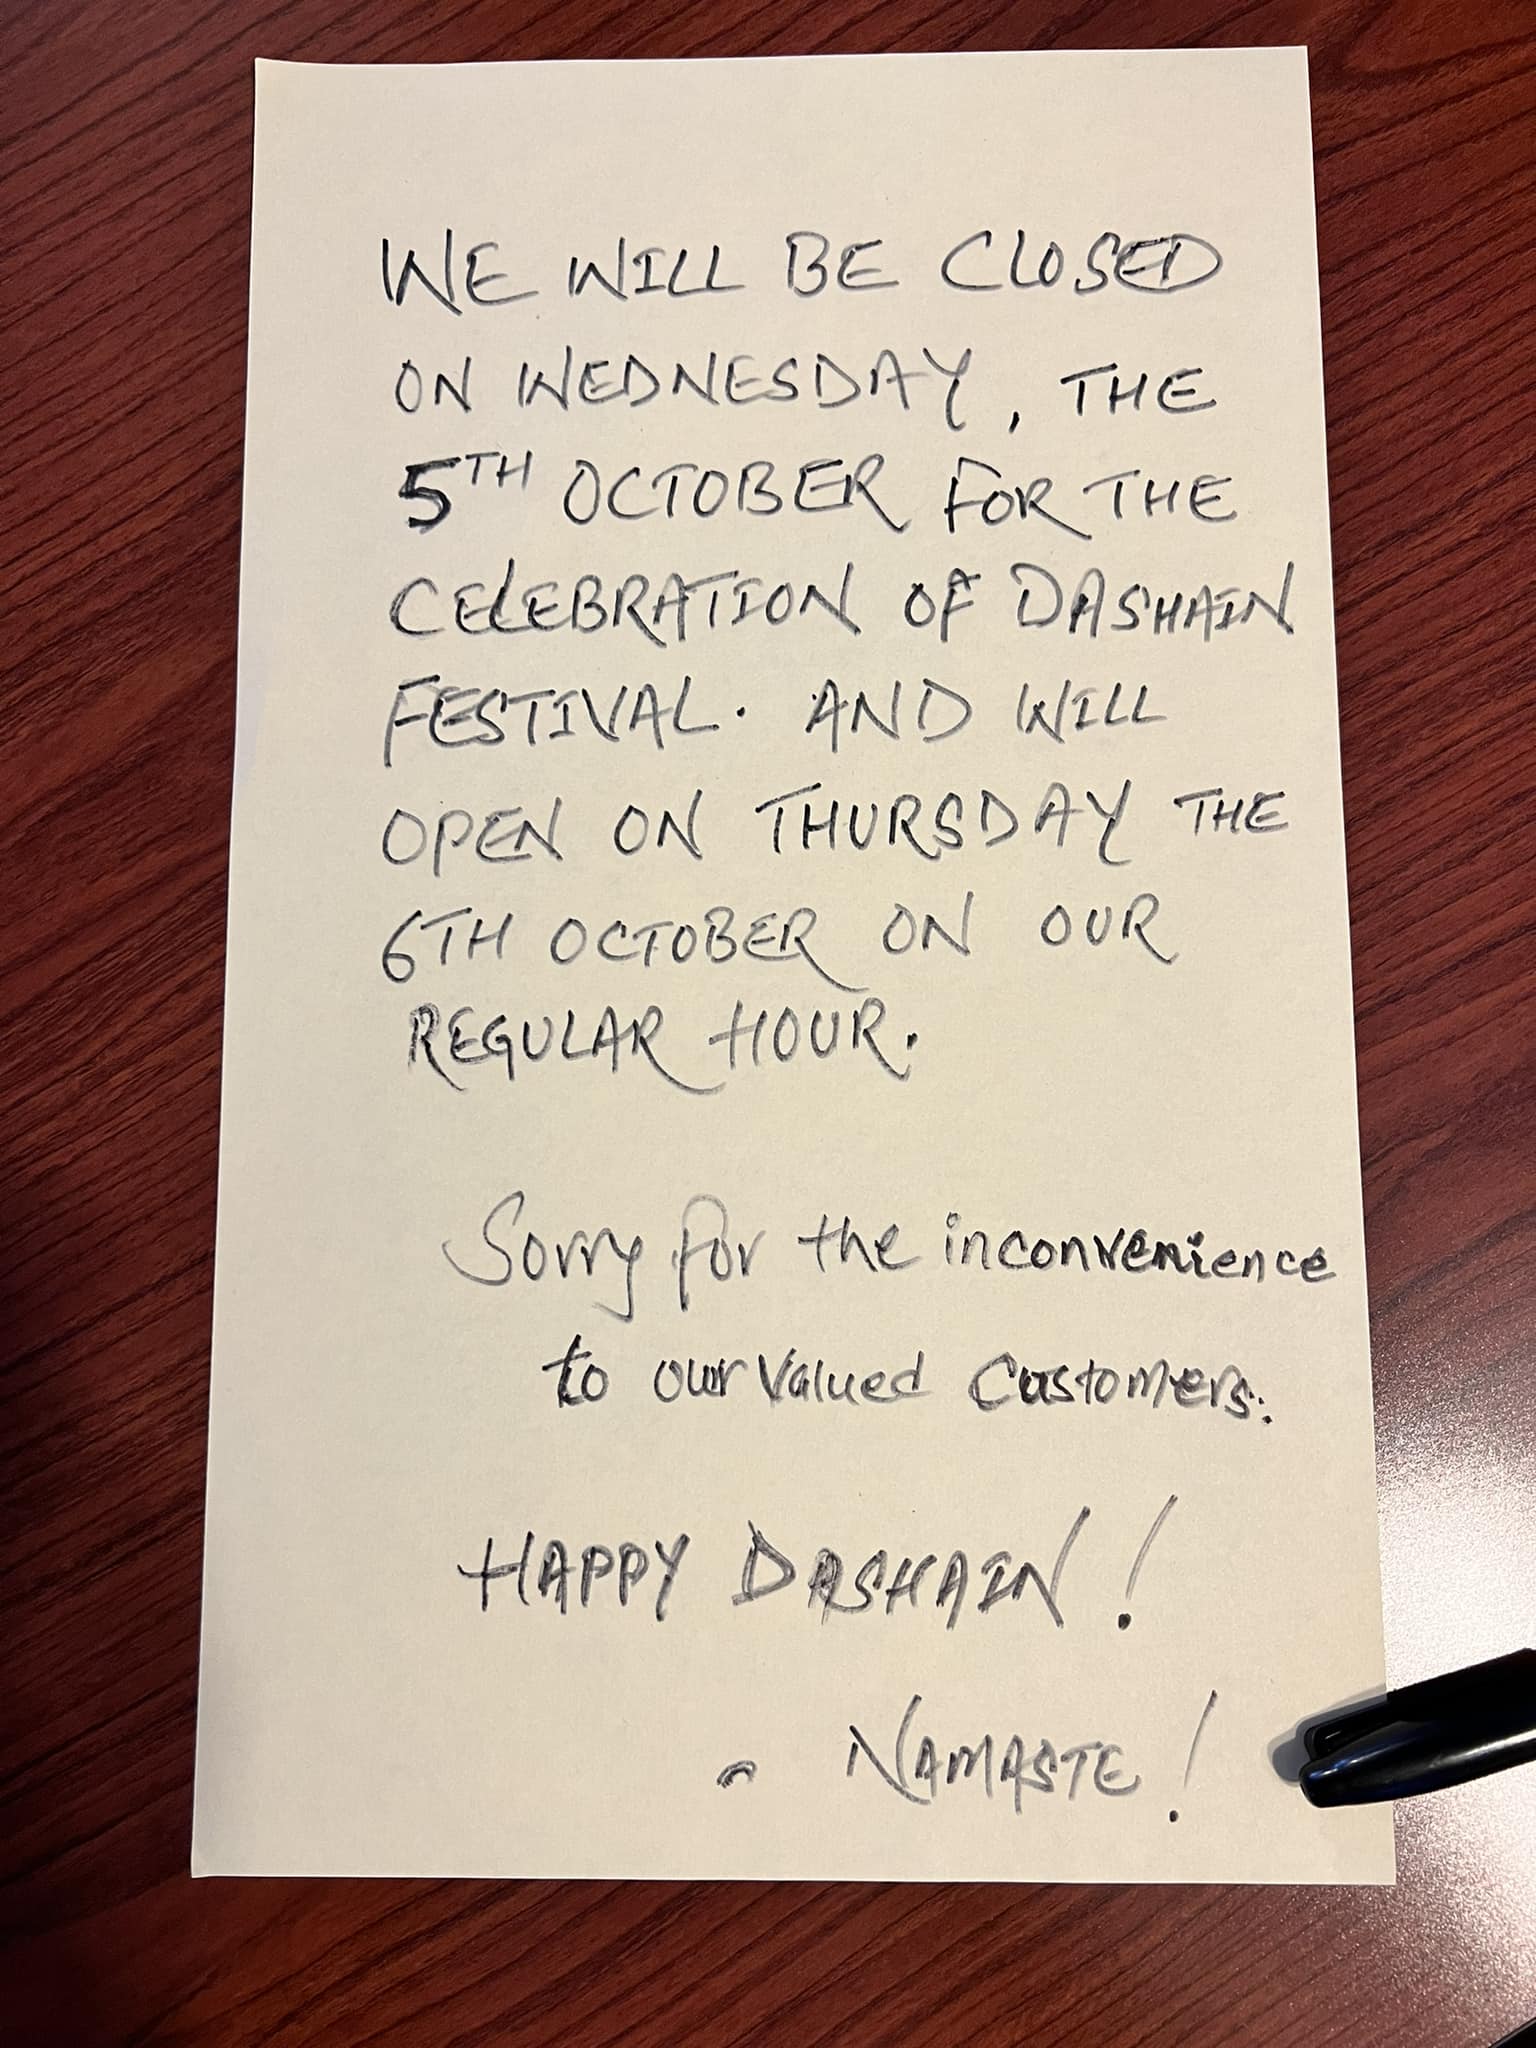 WE WILL BE CLOSED
ON WEDNESDAY, THE
5TH OCTOBER FOR THE
CELEBRATION OF DASHAIN
FESTIVAL. AND WILL
OPEN ON THURSDAY THE
6TH OCTOBER ON OUR
REGULAR HOUR.
Sorry for the inconvenience
to our Valued Customers.
HAPPY DASHAIN!
~ NAMASTE!